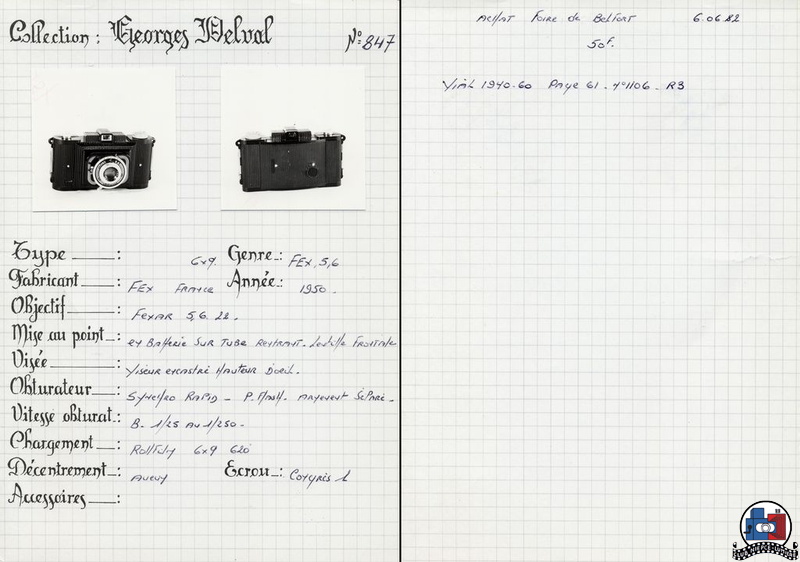 Collection : Georges Delval N° 847
Type : 6x9. Genre : FEX 5,6
Fabricant : FEX FRANCE Année : 1950.
Objectif : FEXAR 5,6. 22.
Mise au point : en Batterie SUR TUBE RENTRANT. Lentille FRONTALE
Visée : Viseur encastré Hauteur D'oeil.
Obturateur : SYNCHRO RAPID - P. Flash. Armement Séparé.
Vitesse obturat. : B. 1/25 AU 1/250.
Chargement : Rollfilm 6x9 620
Décentrement : Aucun Ecrou : Congrès 1
Accessoires :
ACHAT Foire de Belfort 6.06.82
50F.
Vial 1940-60 Page 61. n°1106. R3